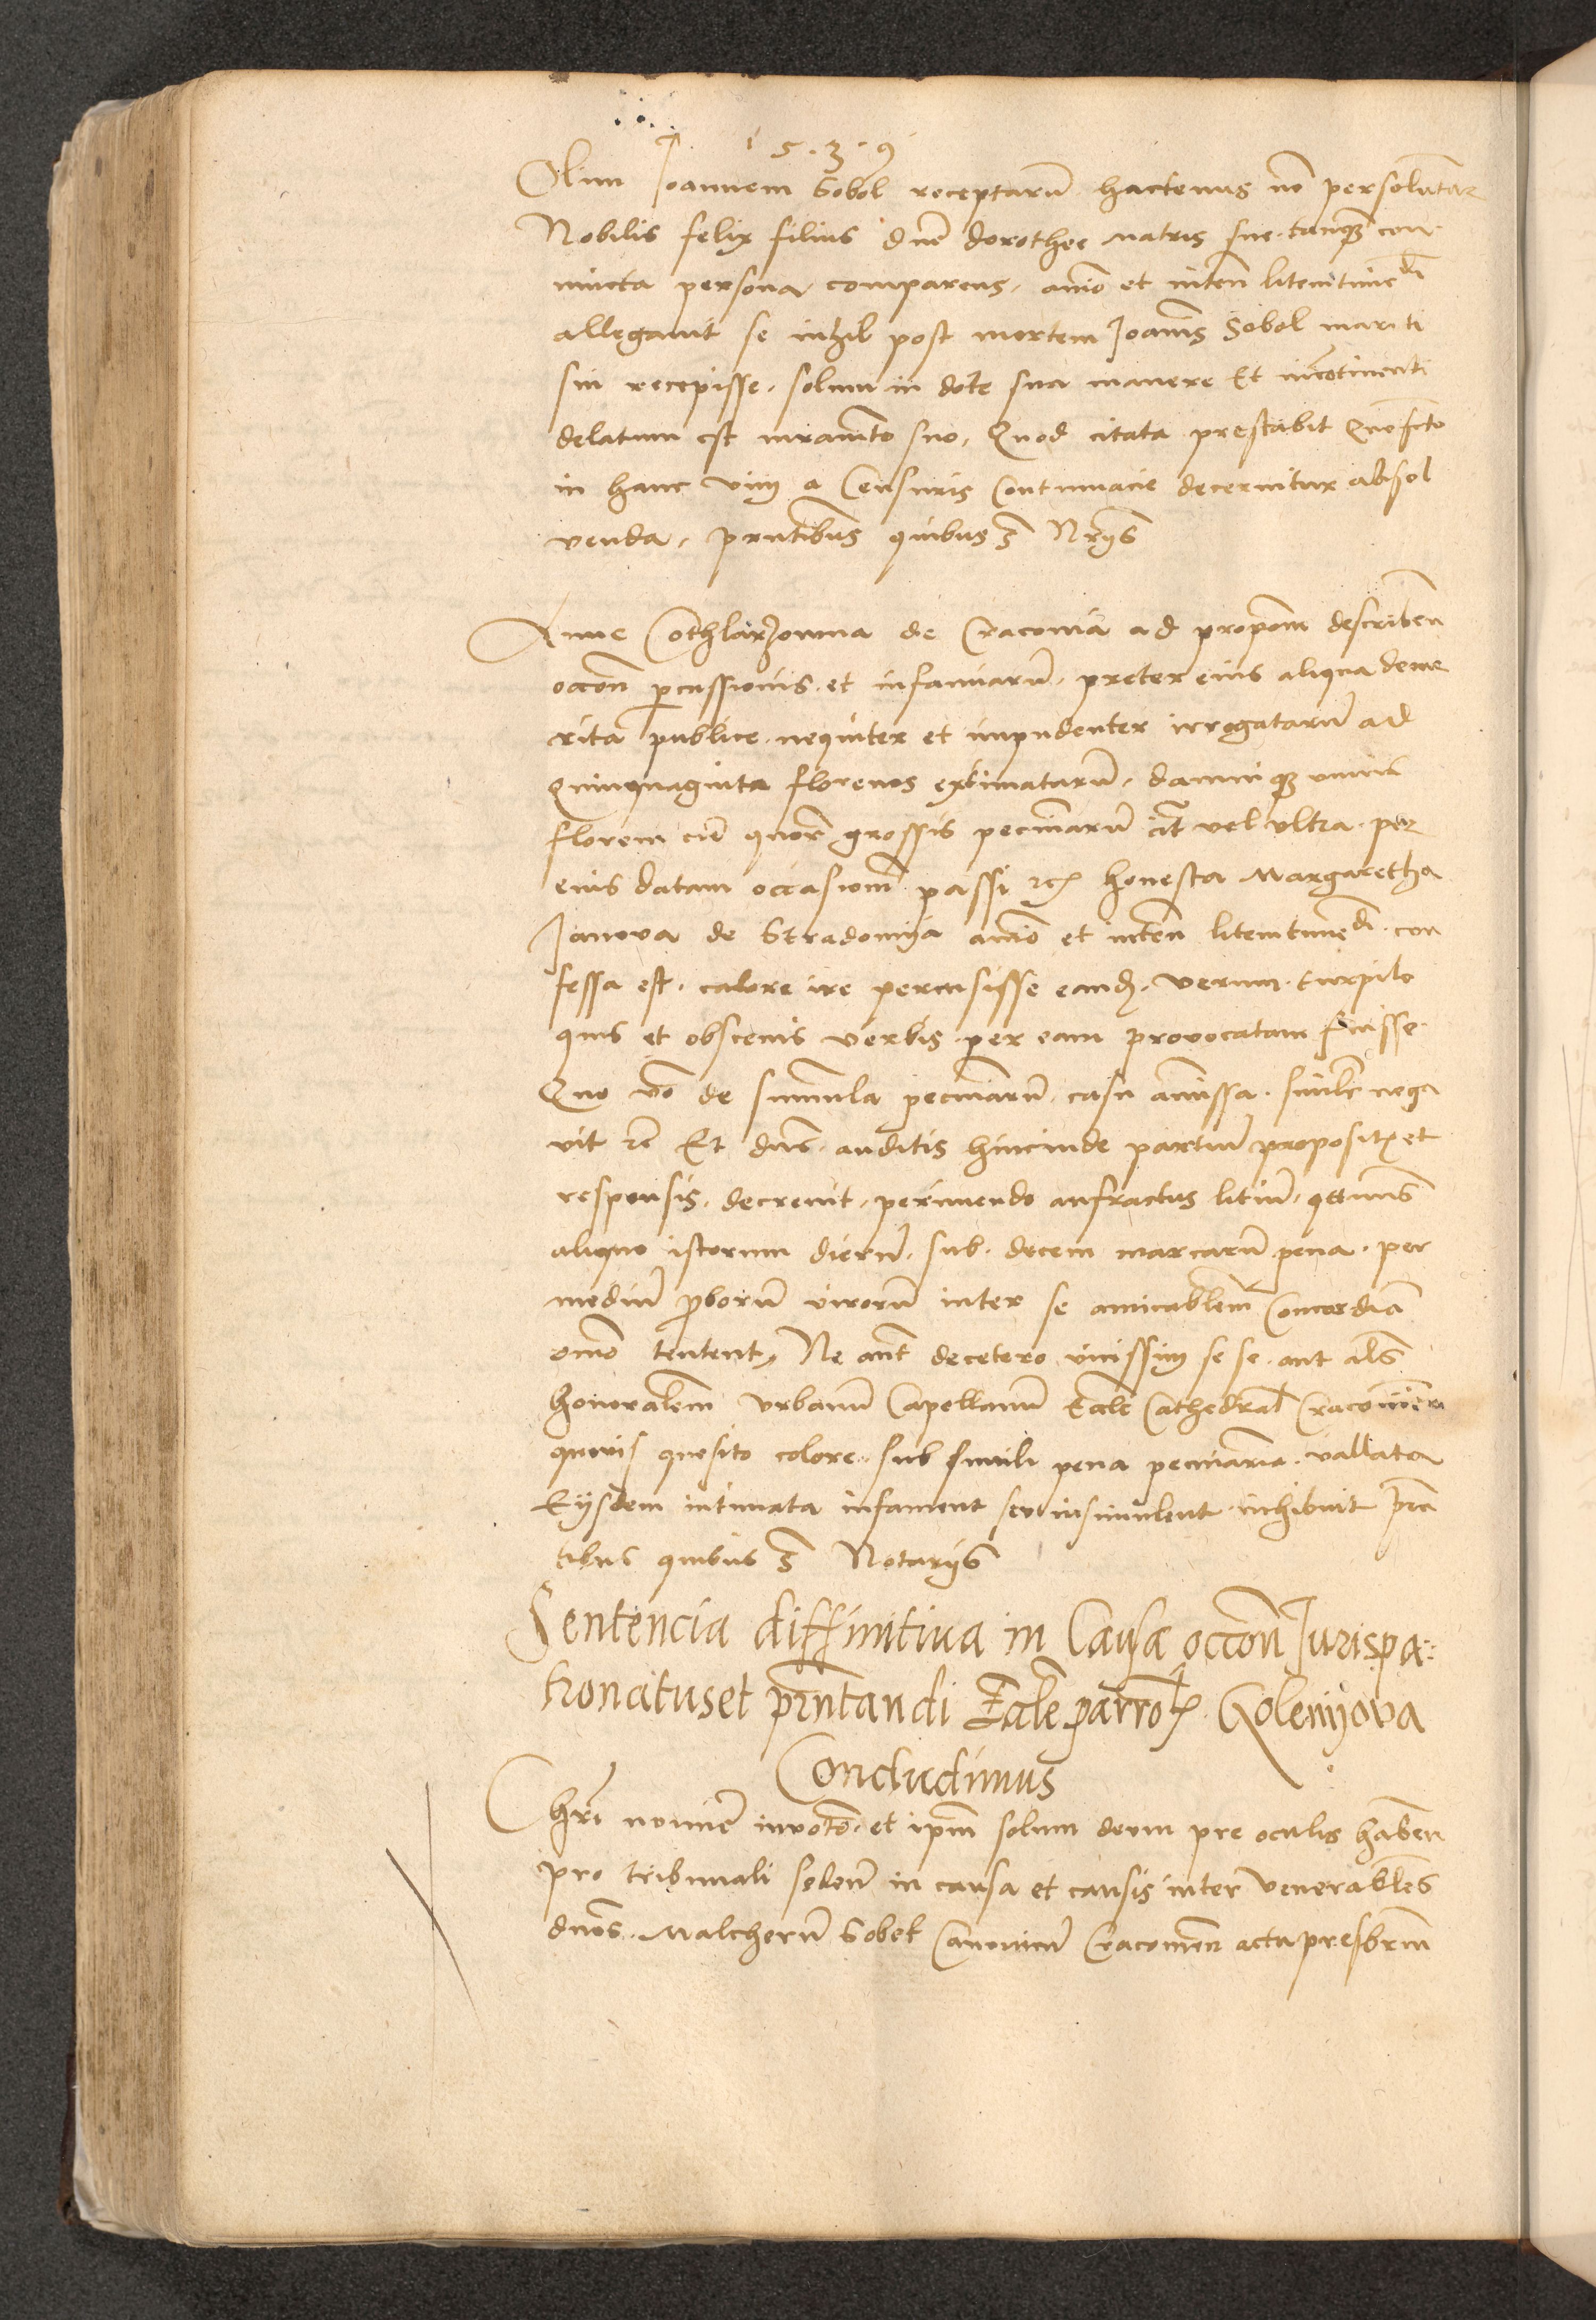 1 5 3 9
Olim Joannem Sobol receptarum hactenus no persolutar
Nobilis felix filius dne dorothee matris sue tanqz con
iuncta persona comparens, animo et inten litecitime di
allegavit se nihil post mortem Joanis Sobol mariti
sui recepisse, solum in dote sua manere Et incotinenti
delatum est iuramto suo, Quod citata prestabit Quo fcto
in hanc vim a Censuris Contumacie decernitur absol
venda, prntibus quibus s Nrijs
Anne Cothlarzowna de Cracovia ad propom describen
occon percussionis et infamiarum preter eius aliqua deme
rita publice nequiter et impudenter irrogatarum ad
Quinquaginta florenos extimatarum, damni qz unius
florem cum quor grossis pecuniarum cit vel ultra per
eius datam occasionem passi etc honesta Margaretha
Janova de Stradomya animo et inten litecitime di con
fessa est, calore ire percusisse eand, verum turpilo
quis et obscenis verbis per eam provocatam fuisse
Quo vo de summula pecuniarum casu amissa, similr nega
vit etc Et dns auditis hincinde partium propositis et
responsis, decrevit, perimendo anfractus litium, qttinus
aliquo istorum dierum, sub decem marcarum pena per
medium proborum virorum inter se amicablem Concordia
omo tentent, Ne aut decetero vicissim se se aut als
honorabilem Urbanum Capellanum Eccle Cathedral Cracovien
quovis quesito colore sub simili pena pecuniaria vallata
Eijsdem intimata infament seu insimulent inhibuit pren
tibus quibus s Notarijs
Sentencia diffinitiva in Causa occon Jurispa
tronatus et prntandi Eccle parrolis Golenijova
Concludimus
Christi nomine invocato et ipm solum deum pre oculis haben
pro tribunali seden in causa et causis inter Venerabiles
dnos Malcherum Sobek Canonicum Cracovien actu presbrm